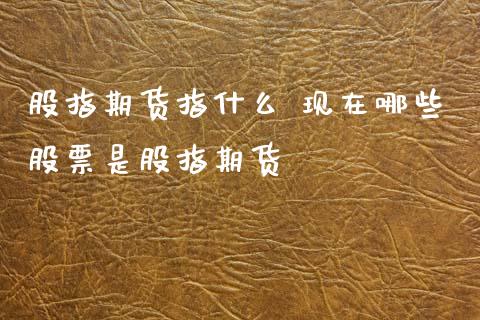 股指期货指什么 现在哪些
股票是股指期货